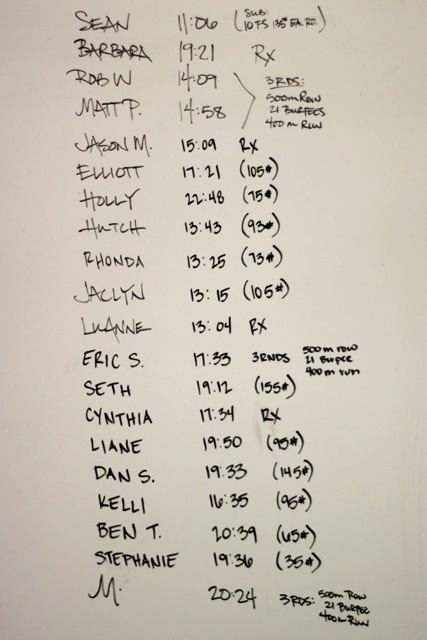 SEAN 11:06 (SUB: 10 FS 135# EA. RD.)
BARBARA 19:21 Rx
ROB W 14:09
MATT P. 14:58
3 RDS:
500m Row
21 BURPEES
400 m RUN
JASON M. 15:09 RX
ELLIOTT 17:21 (105#)
HOLLY 22:48 (75#)
HUTCH 13:43 (93#)
RHONDA 13:25 (73#)
JACLYN 13:15 (105#)
LUANNE 13:04 RX
ERIC S. 17:33 3RNDS 500m row
21 Burpee
400m run
SETH 19:12 (155#)
CYNTHIA 17:34 RX
LIANE 19:50 (95#)
DAN S. 19:33 (145#)
KELLI 16:35 (95#)
BEN T. 20:39 (65#)
STEPHANIE 19:36 (35#)
M. 20:24 3 RDS: 500m Row
21 Burpee
400m Run